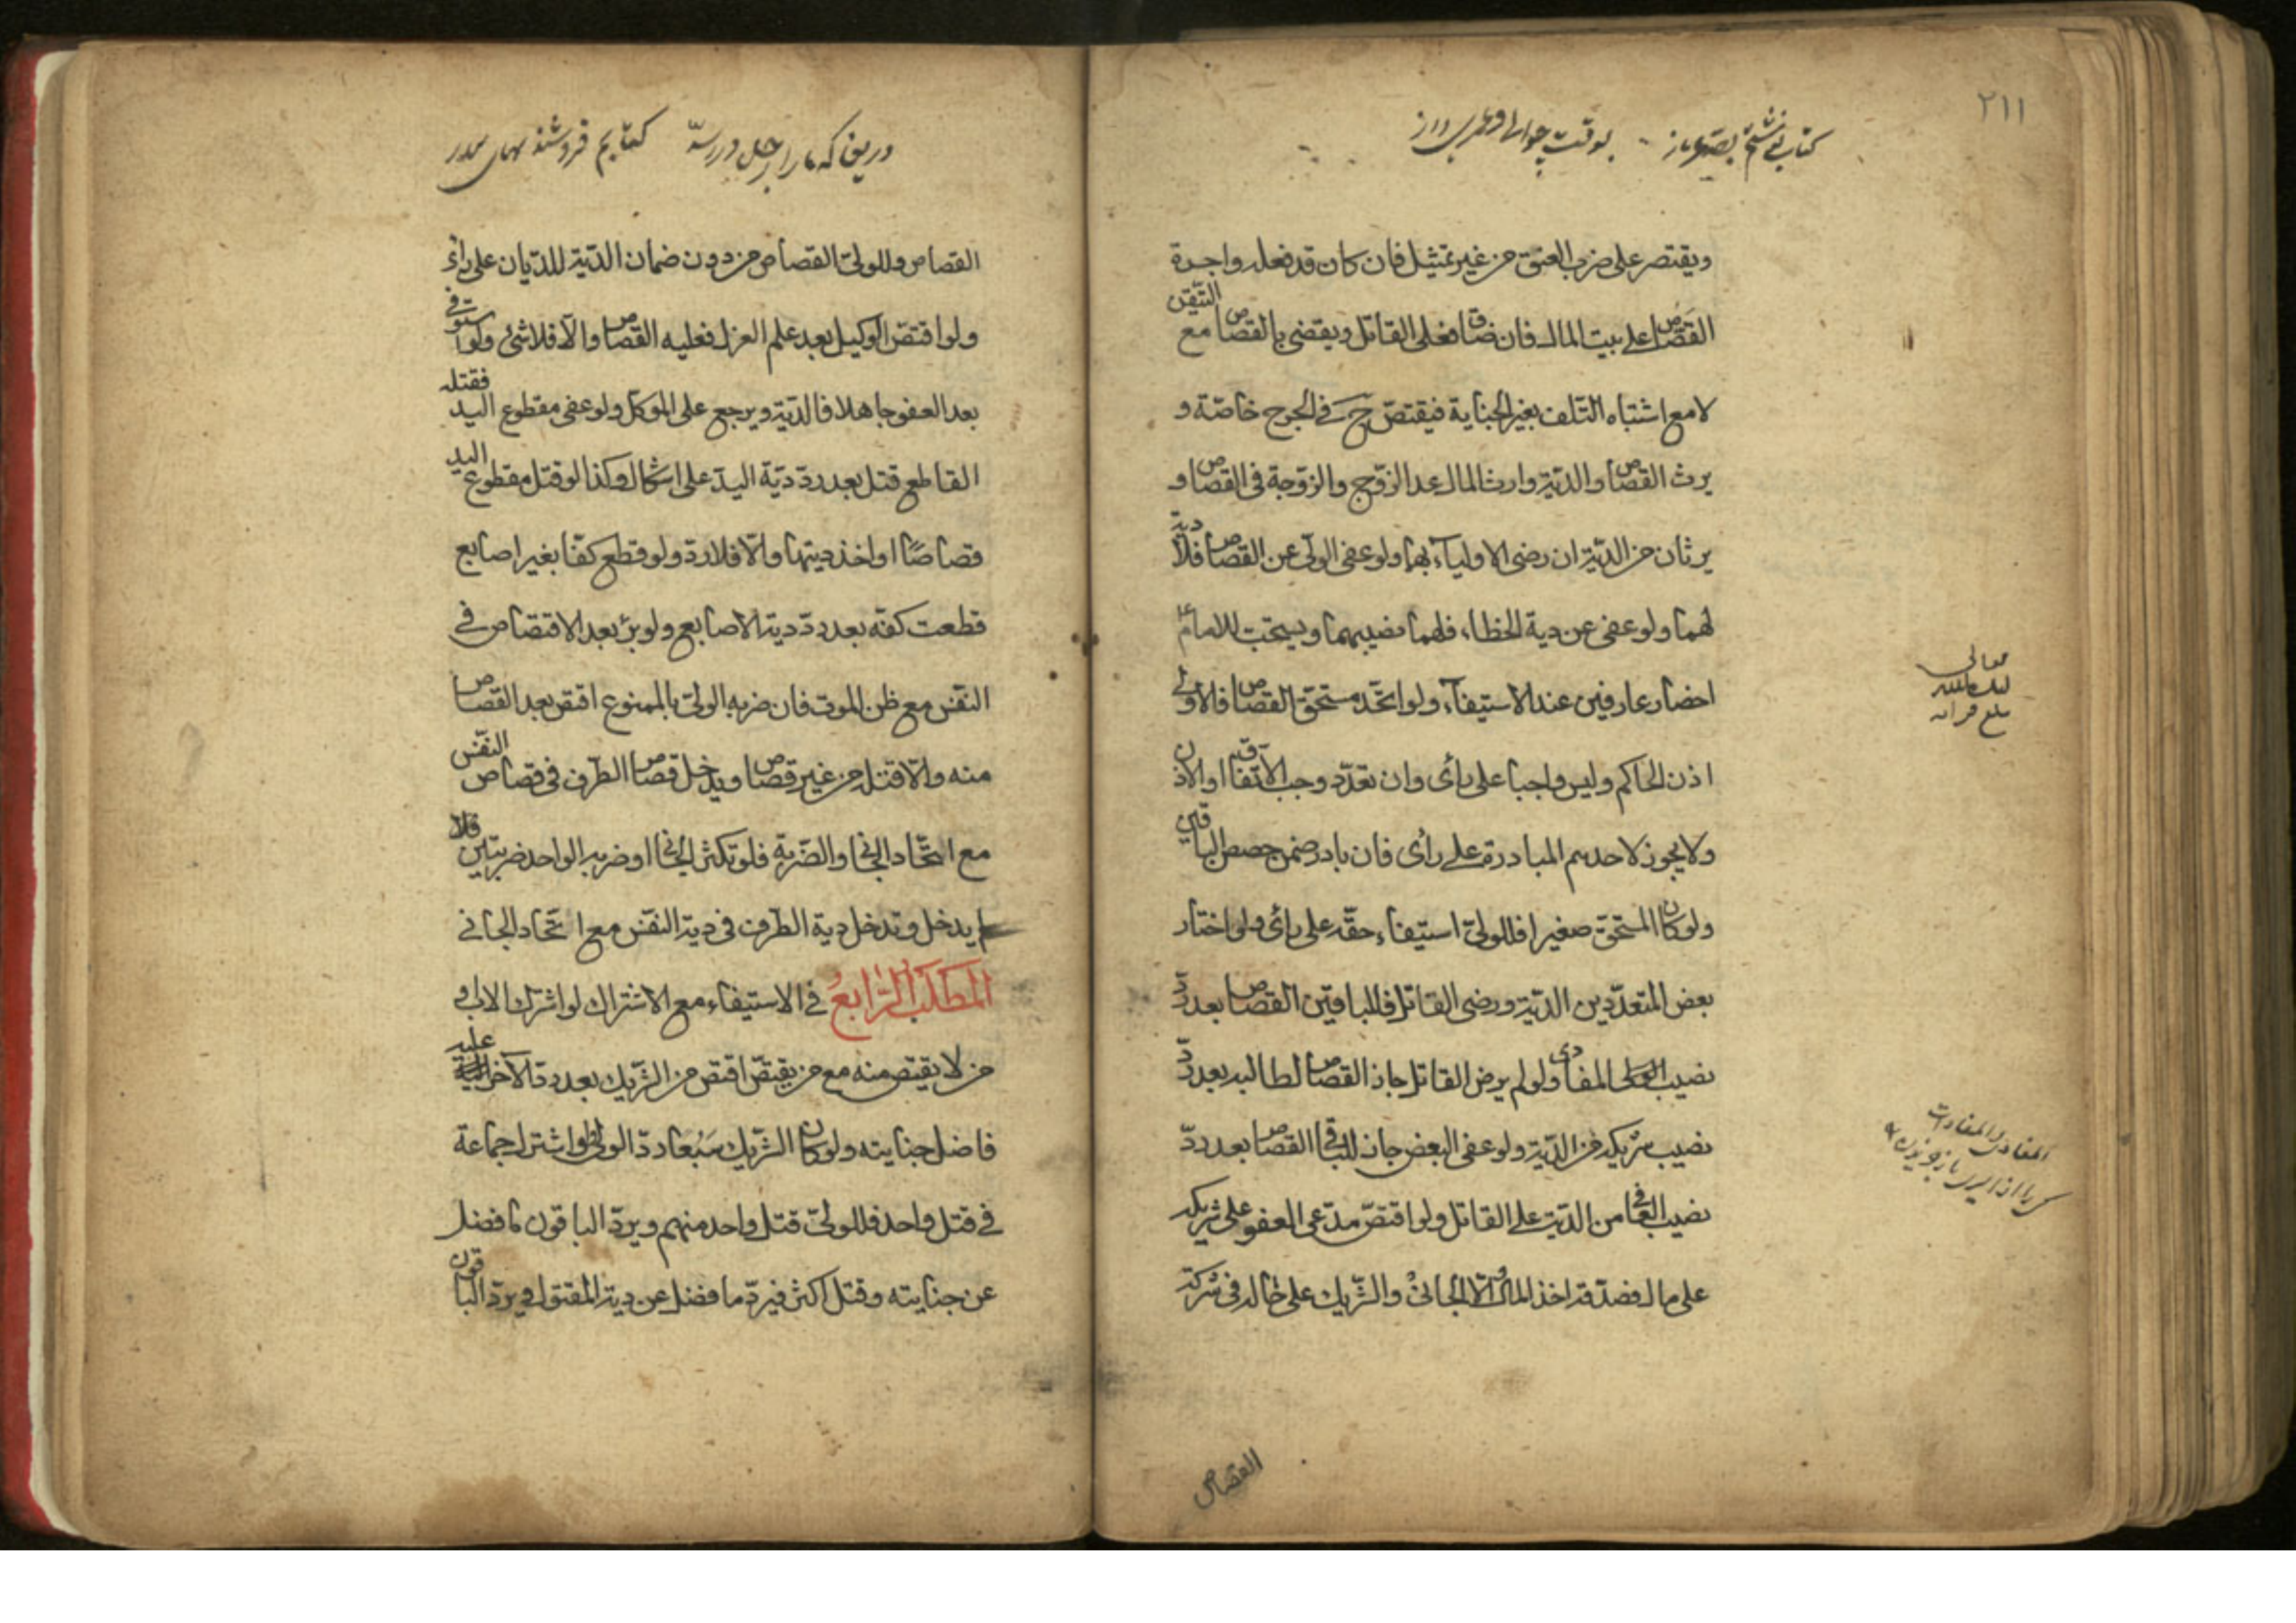 ٢١١
كتابى نوشتم بصد عز و ناز بوقت جوانى و عمر دراز
ويقتصر على ضرب العنق من غير تمثيل فان كان قد فعله واجرة
القصاص على بيت المال فان ضاق فعلى القاتل ويقضى بالقصاص مع التيقن
لا مع اشتباه التلف بغير الجناية فيقتص ح في الجرح خاصّة و
يرث القصاص والديّة وارث المال عدا الزّوج والزّوجة في القصاص و
يرثان من الديّة ان رضى الاولياء بها ولو عفى الولى عن القصاص فلا دية
لهما ولو عفى عن دية الخطاء فلهما نصيبهما ويستحب للامام
احضار عارفين عند الاستيفاء ولو اتّحد مستحق القصاص فالاولى
اذن الحاكم وليس واجبا على رأى وان تعدّد وجب الاتفاق او الاذن
ولا يجوز لاحدهم المبادرة على رأى فان بادر ضمن حصص الباقين
ولو كان المستحق صغيرا فللولىّ استيفاء حقّه على رأى ولو اختار
بعض المتعدّدين الديّة ورضى القاتل فللباقين القصاص بعد ردّ
نصيب المفادى ولو لم يرض القاتل جاز القصاص لطالبه بعد ردّ
نصيب شريكه من الديّة ولو عفى البعض جاز للباقى القصاص بعد ردّ
نصيب العافى من الديّة على القاتل ولو اقتصّ مدّعى العفو على شريكه
على مال فصدقه اخذ المال الجانى والشّريك على حاله في شركته
القصاص
دريغا كه ما را اجل در رسد كتابم فروشند
القصاص وللولىّ القصاص من دون ضمان الديّة للديّان على رأى
ولو اقتصّ الوكيل بعد علم العزل فعليه القصاص والّا فلا شئ ولو استوفى
بعد العفو جاهلا فالديّة ويرجع على الموكل ولو عفى مقطوع اليد فقتله
القاطع قتل بعد ردّ ديّة اليد على اشكال وكذا لو قتل مقطوع اليد
قصاصًا او اخذ ديتها والّا فلا ردّ ولو قطع كفّا بغير اصابع
قطعت كفّه بعد ردّ دية الاصابع ولو برئ بعد الاقتصاص في
النفس مع ظن الموت فان ضربه الولىّ بالممنوع اقتص بعد القصاص
منه والّا قتله من غير قصاص ويدخل قصاص الطرف في قصاص النفس
مع اتّحاد الجانى والضّربة فلو تكثر الجانى او ضربه الواحد ضربتين فلا
يدخل وتدخل دية الطرف في دية النفس مع اتّحاد الجاني
المَطلَبُ الرّابعُ في الاستيفاء مع الاشتراك لو اشترك الاب و
من لا يقتص منه مع من يقتصّ اقتص من الشّريك بعد ردّ الآخر عليه
فاضل جنايته ولو كان الشّريك سَبُعا ردّ الولى ولو اشترك جماعة
في قتل واحد فللولىّ قتل واحد منهم ويردّ الباقون ما فضل
عن جنايته وقتل اكثر فيردّ ما فضل عن دية المقتول ويردّ الباقون